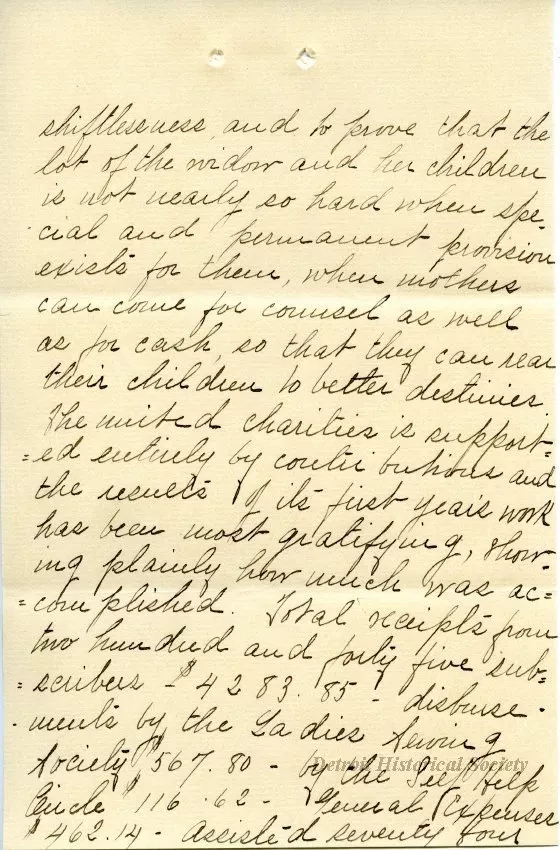 shiftlessness, and to prove that the
lot of the widow and her children
is not nearly so hard when spe-
cial and permanent provision
exists for them, when mothers
can come for counsel as well
as for cash, so that they can rear
their children to better destinies.
The united charities is support=
=ed entirely by contributions and
the results of its first years work
has been most gratifying, show-
ing plainly how much was ac=
=complished. Total receipts from
two hundred and forty five sub=
=scribers - $4283.85 - disburse-
-ments by the Ladies Sewing
Society $567.80 - by the Self Help
Circle $116.62 - General Expenses
$462.14 - Assisted seventy four
Detroit Historical Society